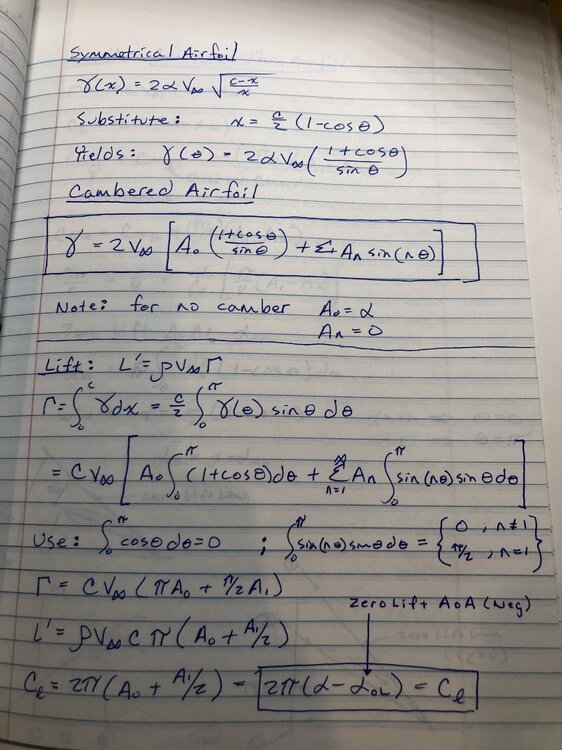 Symmetrical Airfoil
γ(x) = 2αV∞ √((c-x)/x)
Substitute: x = c/2 (1-cosθ)
Yields: γ(θ) = 2αV∞ ((1+cosθ)/sinθ)
Cambered Airfoil
γ = 2V∞ [A₀ ((1+cosθ)/sinθ) + Σ Aₙ sin(nθ)]
Note: for no camber A₀ = α
Aₙ = 0
Lift: L' = ρV∞Γ
Γ = ∫₀ᶜ γdx = c/2 ∫₀^π γ(θ) sinθ dθ
= CV∞ [A₀∫₀^π (1+cosθ)dθ + Σₙ₌₁^∞ Aₙ ∫₀^π sin(nθ)sinθdθ]
Use: ∫₀^π cosθdθ=0 ; ∫₀^π sin(nθ)sinθdθ = {0 , n≠1
π/2 , n=1}
Γ = CV∞ (πA₀ + π/2 A₁)
Zero Lift AoA (Neg)
L' = ρV∞cπ (A₀ + A₁/2)
Cℓ = 2π(A₀ + A₁/2) = 2π(α-α₀L) = Cℓ